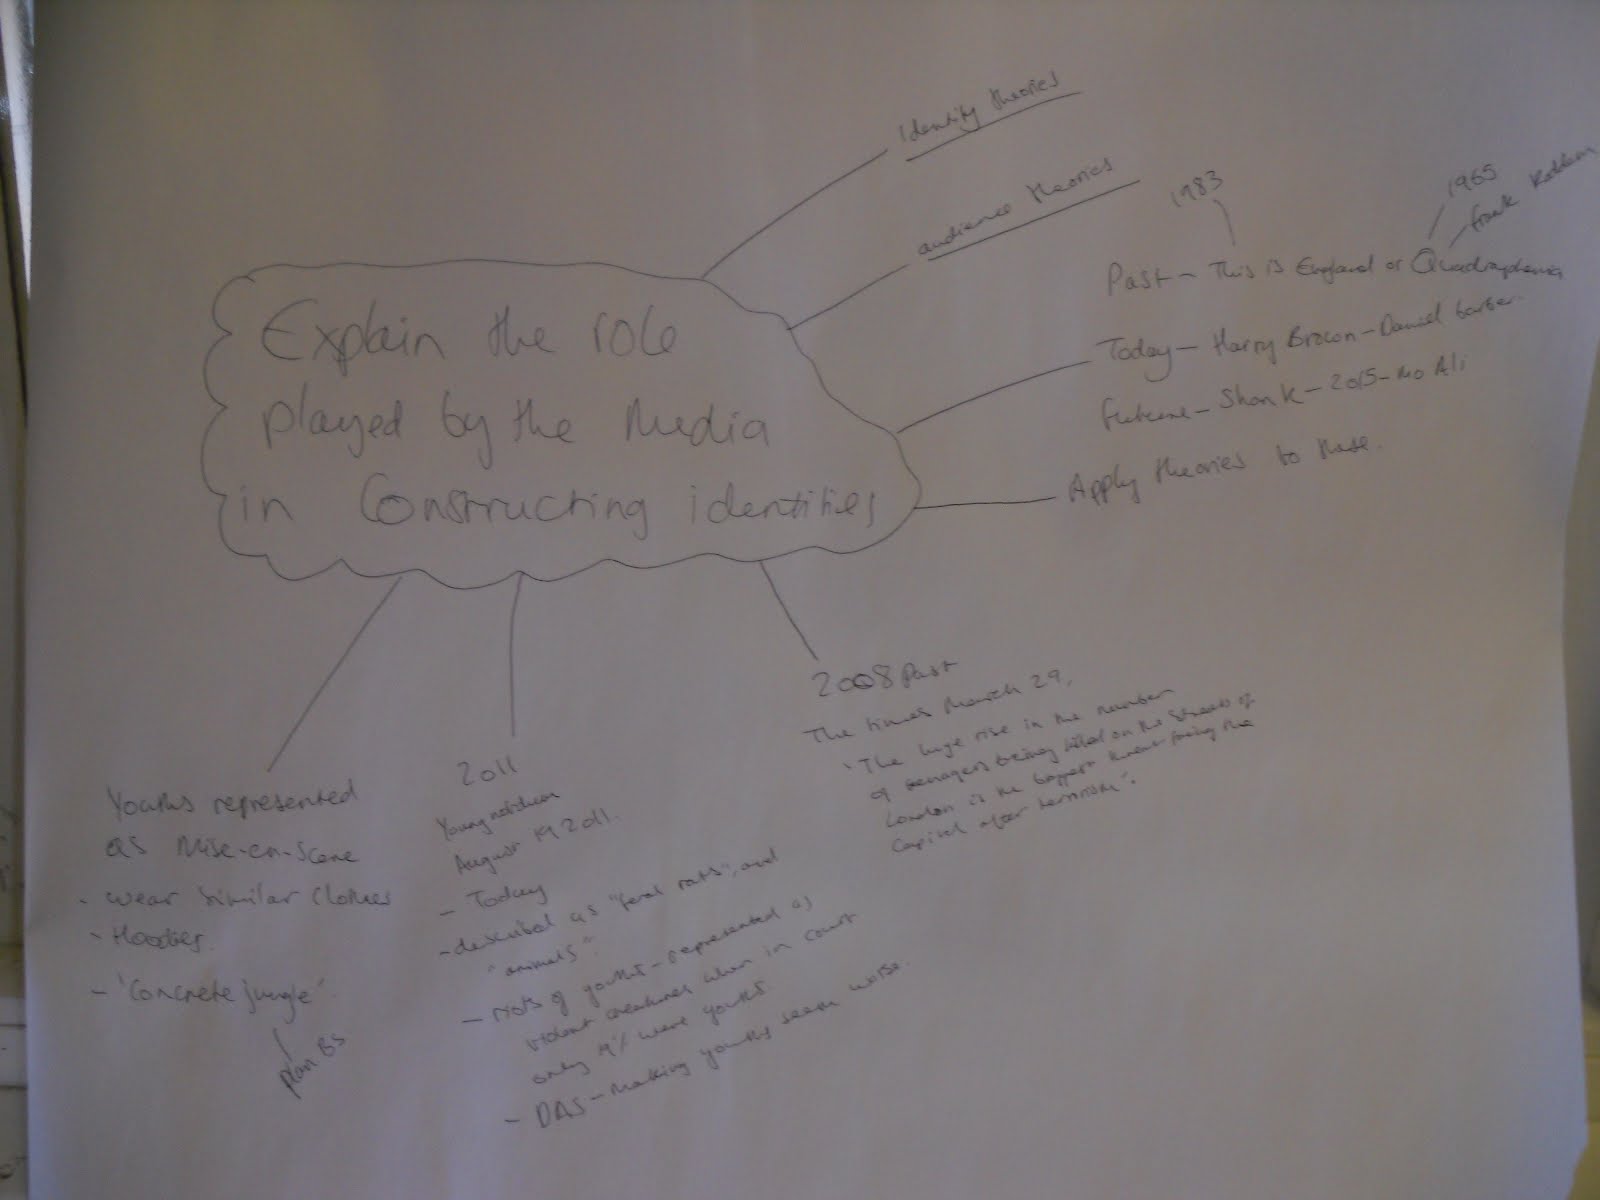 Explain the role
played by the Media
in Constructing identities
Identity theories
audience theories
1983
1965
Frank Roddam
Past - This is England or Quadraphenia
Today - Harry Brown - Daniel barber.
Future - Shank - 2015 - Mo Ali
Apply theories to these.
2008 Past
The times March 29,
'The huge rise in the number
of teenagers being killed on the streets of
London is the biggest threat facing the
Capital after terrorists'.
2011
August 19 2011.
- Today
- described as "feral rats", and
"animals".
- riots of youths - represented as
violent creatures when in court
only % were youths
- DAS - making youths seem worse.
Youths represented
as Mise-en-Scene
- wear Similar Clothes
- Hoodies.
- 'Concrete jungle'.
Plan B's